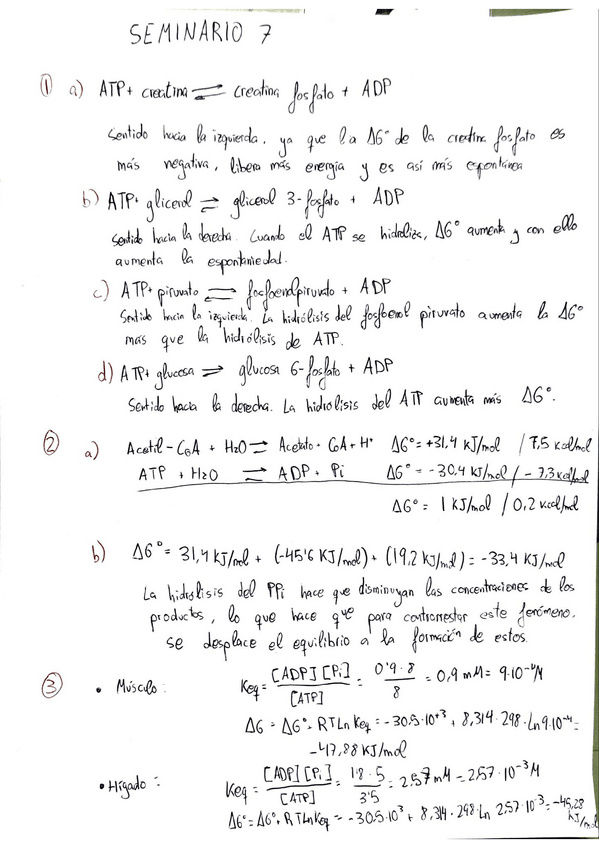 SEMINARIO 7
① a) ATP + creatina ⇌ creatina fosfato + ADP
Sentido hacia la izquierda, ya que la ΔG° de la creatina fosfato es
más negativa, libera más energía y es así más espontánea
b) ATP + glicerol ⇌ glicerol 3-fosfato + ADP
Sentido hacia la derecha. Cuando el ATP se hidroliza, ΔG° aumenta y con ello
aumenta la espontaniedad.
c) ATP + piruvato ⇌ fosfoenolpiruvato + ADP
Sentido hacia la izquierda. La hidrólisis del fosfoenol piruvato aumenta la ΔG°
más que la hidrólisis de ATP.
d) ATP + glucosa ⇌ glucosa 6-fosfato + ADP
Sentido hacia la derecha. La hidrólisis del ATP aumenta más ΔG°.
② a) Acetil-CoA + H2O ⇌ Acetato + CoA + H⁺ ΔG° = +31,4 kJ/mol / 7,5 kcal/mol
ATP + H2O ⇌ ADP + Pi ΔG° = -30,4 kJ/mol / -7,3 kcal/mol
ΔG° = 1 kJ/mol / 0,2 kcal/mol
b) ΔG° = 31,4 kJ/mol + (-45'6 KJ/mol) + (19,2 KJ/mol) = -33,4 KJ/mol
La hidrólisis del PPi hace que disminuyan las concentraciones de los
productos, lo que hace que para controrrestar este fenómeno.
se desplace el equilibrio a la formación de estos.
③ • Músculo: Keq = [ADP][Pi] / [ATP] = 0'9·8 / 8 = 0,9 mM = 9·10⁻⁴M
ΔG = ΔG° + RTLn Keq = -30.5·10⁺³ + 8,314·298·Ln 9·10⁻⁴ =
-47,88 KJ/mol
• Hígado: Keq = [ADP][Pi] / [ATP] = 1'8·5 / 3'5 = 2,57 mM = 2,57·10⁻³M
ΔG° = ΔG° + RTLn Keq = -30.5·10³ + 8,314·298·Ln 2,57·10⁻³ = -45,28 KJ/mol